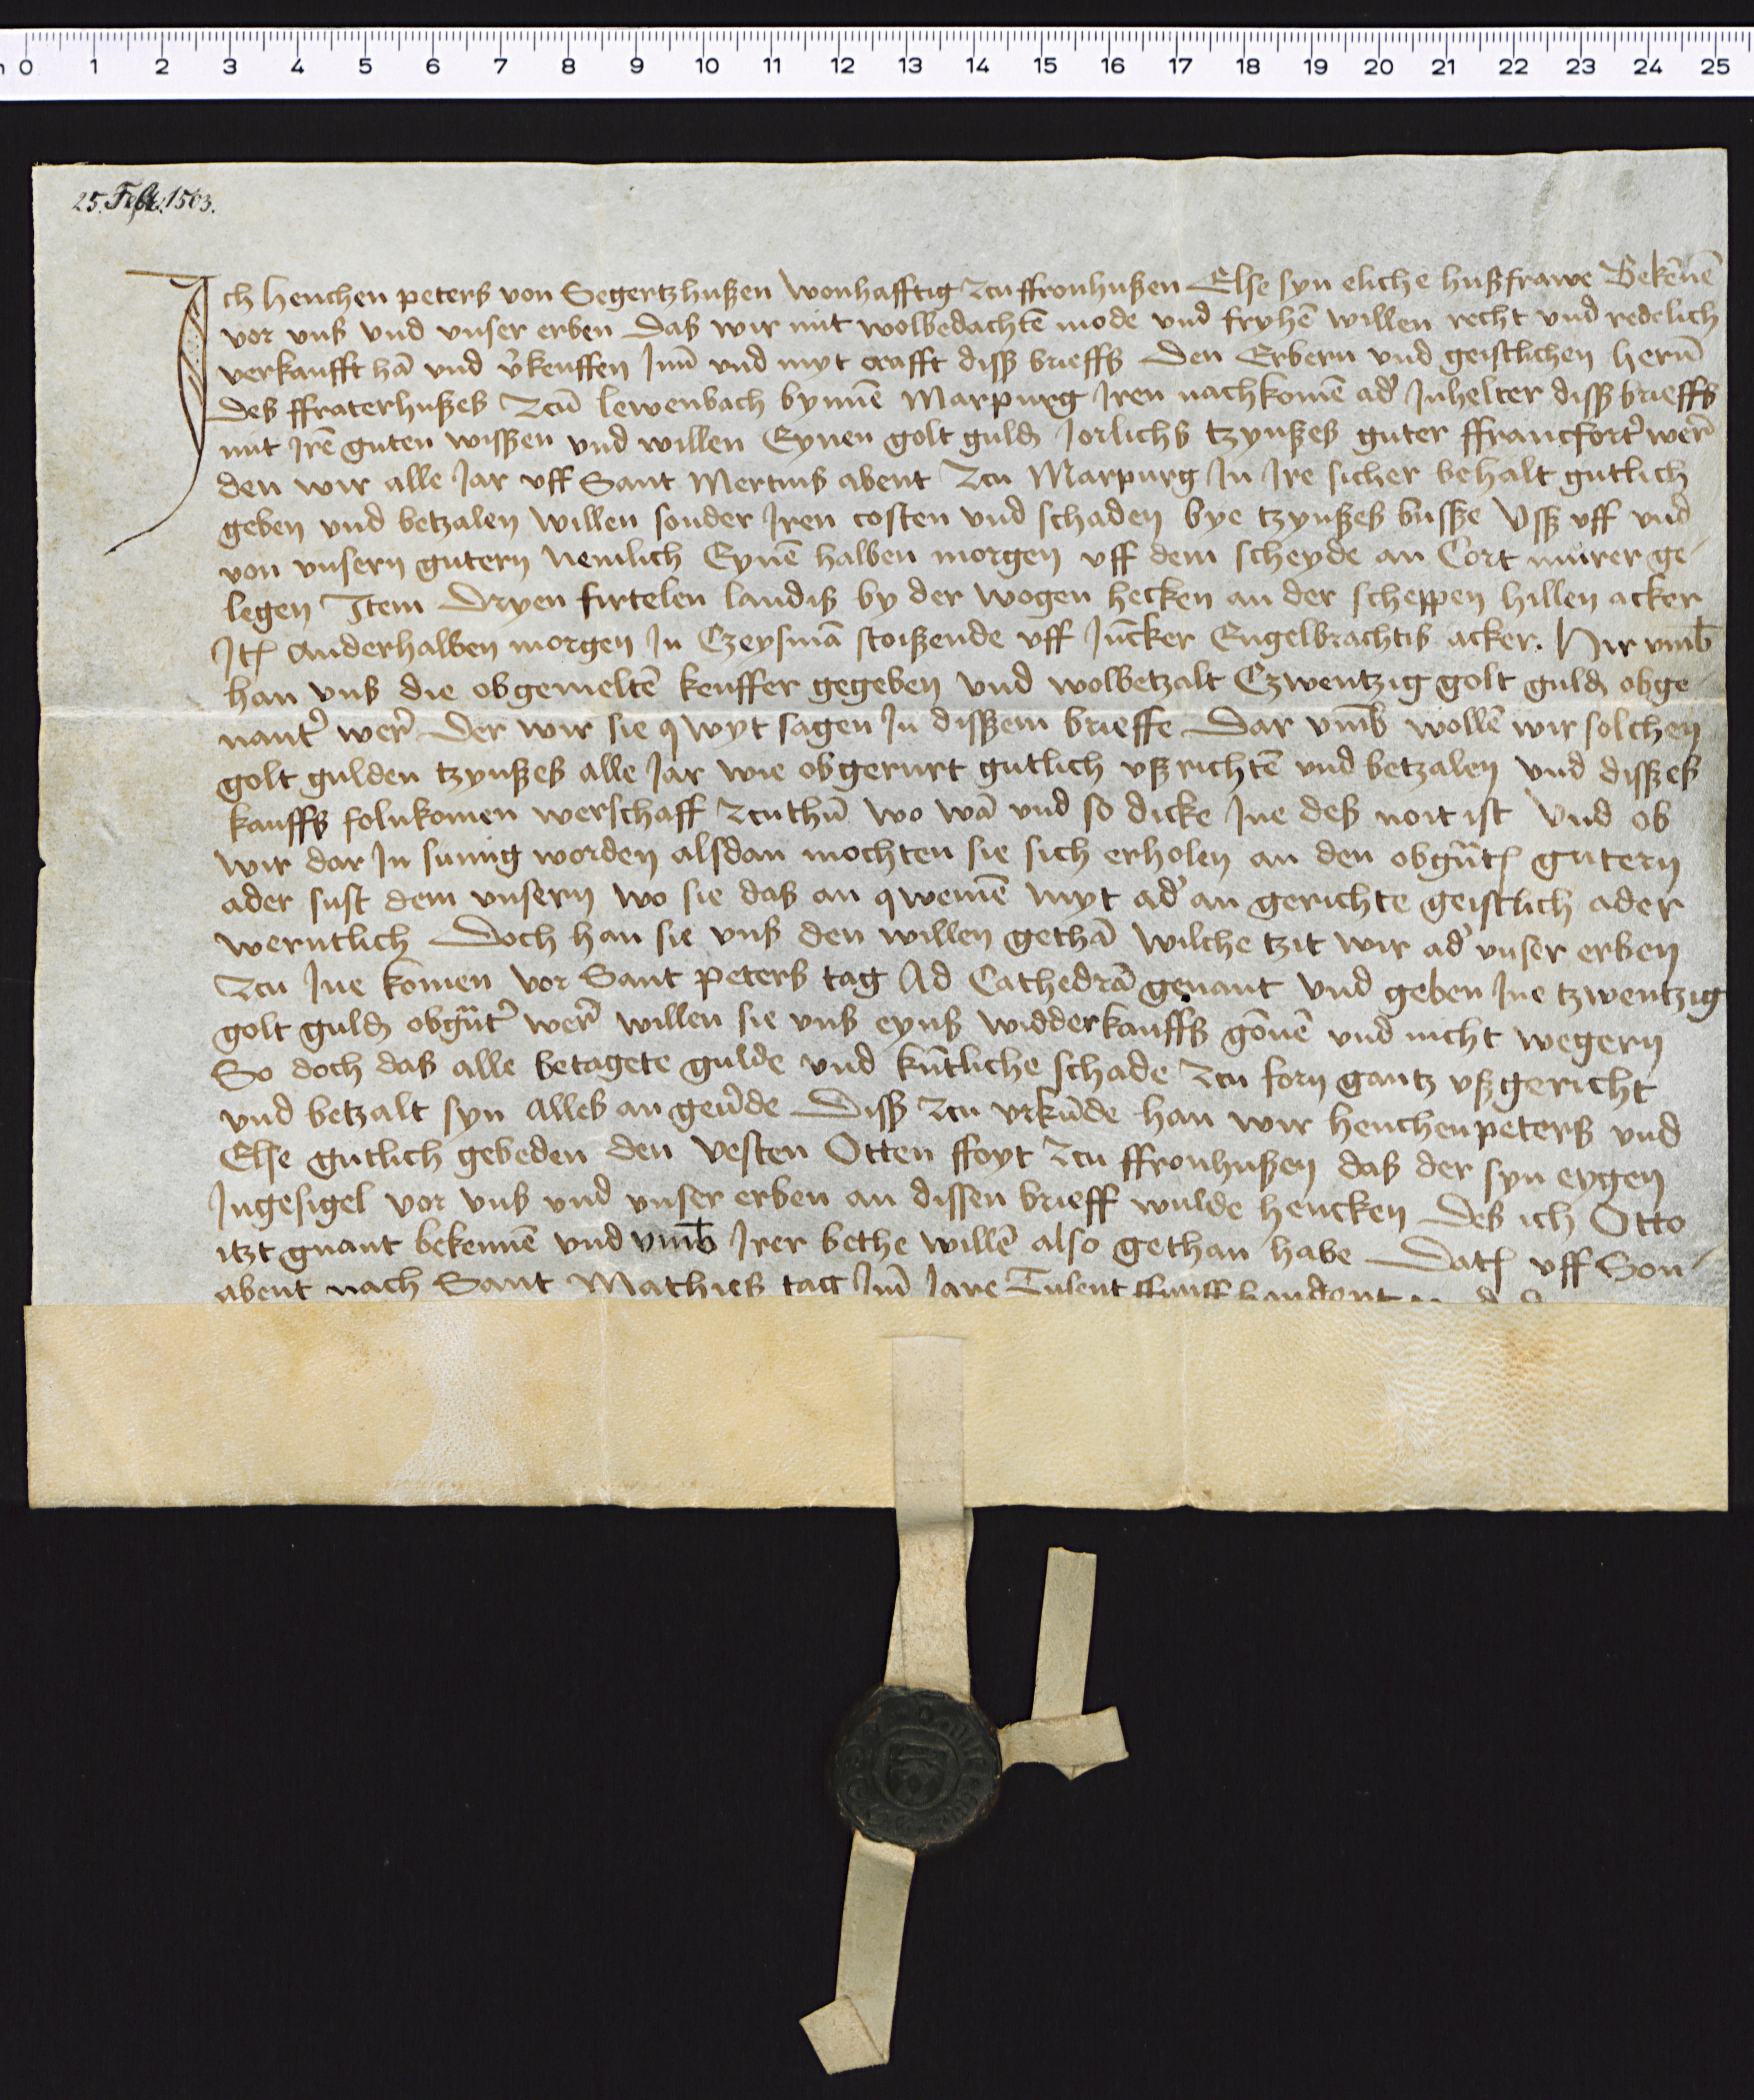 0 1 2 3 4 5 6 7 8 9 10 11 12 13 14 15 16 17 18 19 20 21 22 23 24 25
25. Febr. 1503.
Ich Henchen peters von Segertzhußen wonhafftig zcu ffronhußen Else syn eliche hußfrawe Bekēnē
vor vnß vnd vnser erben Daß wir mit wolbedachtē mode vnd fryhē willen recht vnd redelich
verkaufft hā vnd v'keuffen Jnn̄ vnd myt crafft diss brieffs Den Erbern vnd geistlichen hern̄
deß ffraterhußes Zcū lewenbach bynnē Marpurg Jren nachkomē ad' Jnhelter diss brieffs
mit Jrē guten wissen vnd willen Eynen golt guld Jorlichs tzynßes guter ffrancfort' wer'
den wir alle Jar vff Sant Mertins abent Zcu Marpurg Jn Jre sicher behalt gutlich
geben vnd betzalen willen sonder Jren costen vnd schaden bye tzynßes busße Vss vff vnd
von vnsern gutern nemlich Eynē halben morgen vff dem scheyde an Cort mürer ge-
legen Item Dryen firtelen landiß by der wogen hecken an der scheppen hillen acker
Jt Anderhalben morgen Jn Czeysmā stoißende vff Jūcker Engelbrachtis acker. Hir vmb
han vnß die obgemeltē keuffer gegeben vnd wolbetzalt Czwentzig golt guld obge-
nant' wer' Der wir sie qwyt sagen Jn dißßem brieffe Dar vmb wollē wir solchen
golt gulden tzynßes alle Jar wie obgerurt gutlich vßrichtē vnd betzalen vnd disßes
kauffs folnkomen werschaff zcuthū wo wā vnd so dicke Jne deß noit ist Vnd ob
wir dar Jn sumig worden alsdan mochten sie sich erholen an den obgn̄t gutern
ader sust dem vnsern wo sie daß an qwemē myt ad' an gerichte geistlich ader
werntlich Doch han sie vnß den willen gethā wilche tzit wir ad' vnser erben
Zcu Jne komen vor Sant peters tag Ad Cathedrā genant vnd geben Jne tzwentzig
golt guld obgn̄t' wer' willen sie vnß eynß widderkauffs gōnē vnd nicht wegern
So doch daß alle betagete gulde vnd kūtliche schade Zcu forn gantz vßgericht
vnd betzalt syn Alles an geu'de Diss zcu vrkūde han wir henchen peters vnd
Else gutlich gebeden den vesten Otten ffoyt zcu ffronhußen daß der syn eygen
Jngesigel vor vnß vnd vnser erben an dissen brieff wulde hencken Deß ich Otto
itzt gnant bekennē vnd vmb Jrer bethe willē also gethan habe Dat vff Son-
abent nach Sant Mathies tag Jm̄ Jare Tusent ffunff hundert